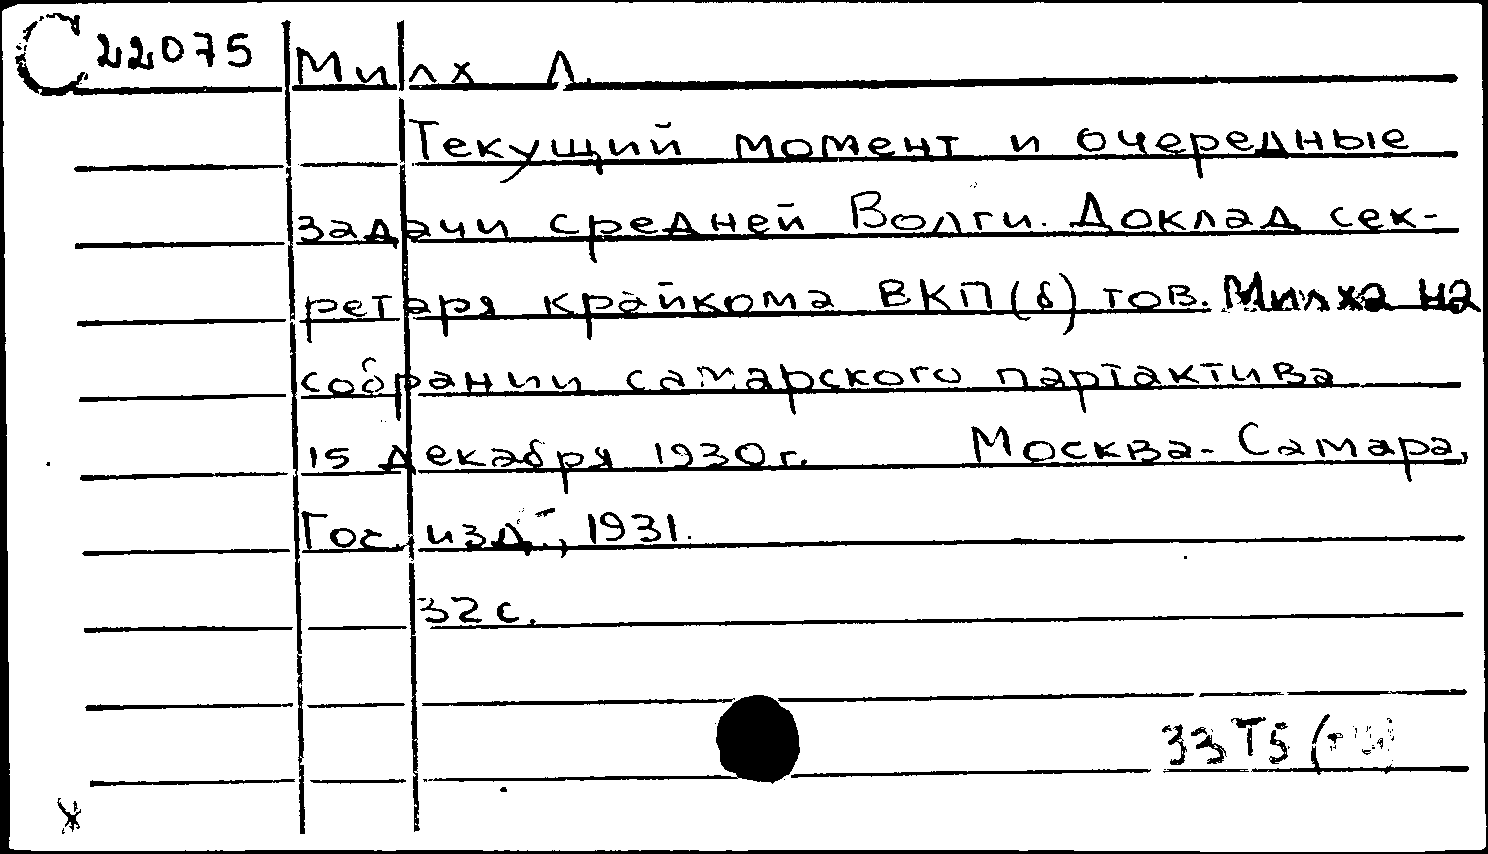 С 22075 Милх Л.
Текущий момент и очередные
задачи средней Волги. Доклад сек-
ретаря крайкома ВКП(б) тов. Милха на
собрании самарского партактива
15 декабря 1930г. Москва-Самара,
Гос. изд., 1931.
32 с.
33Т5
ж